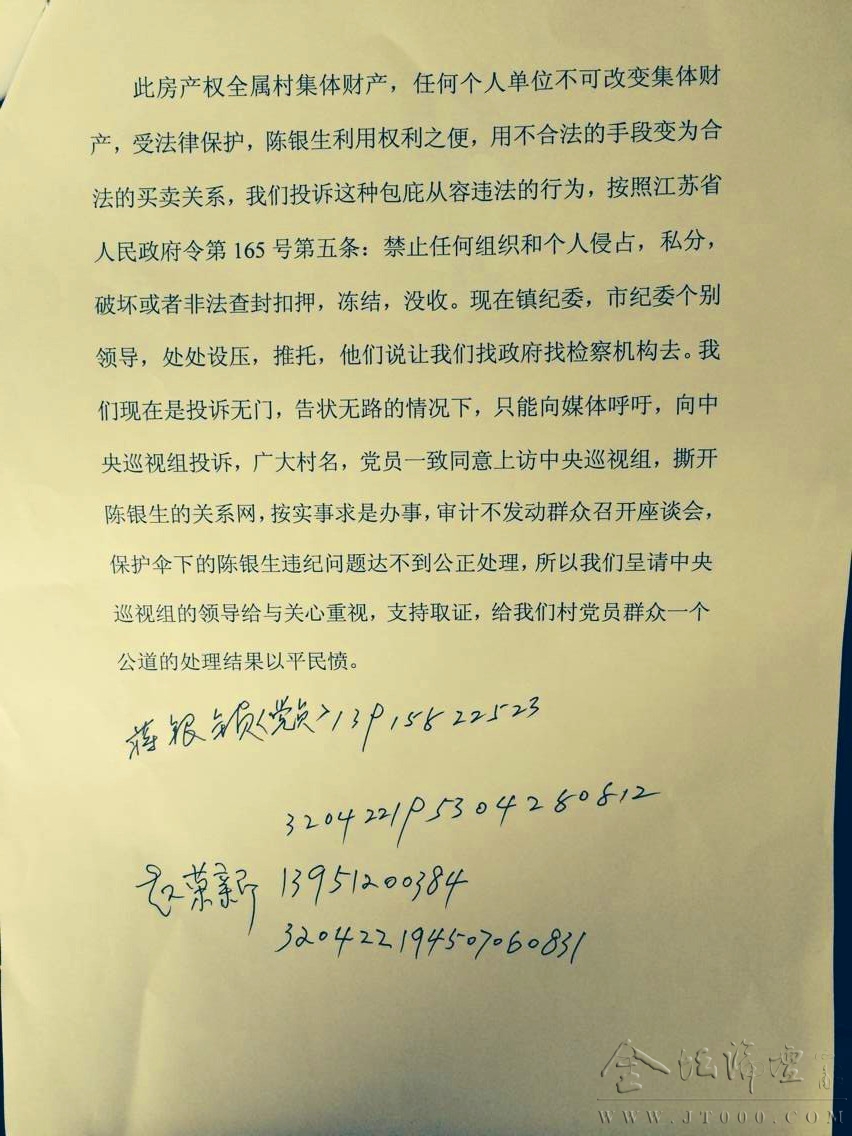 此房产权全属村集体财产，任何个人单位不可改变集体财
产，受法律保护，陈银生利用权利之便，用不合法的手段变为合
法的买卖关系，我们投诉这种包庇从容违法的行为，按照江苏省
人民政府令第 165 号第五条：禁止任何组织和个人侵占，私分，
破坏或者非法查封扣押，冻结，没收。现在镇纪委，市纪委个别
领导，处处设压，推托，他们说让我们找政府找检察机构去。我
们现在是投诉无门，告状无路的情况下，只能向媒体呼吁，向中
央巡视组投诉，广大村名，党员一致同意上访中央巡视组，撕开
陈银生的关系网，按实事求是办事，审计不发动群众召开座谈会，
保护伞下的陈银生违纪问题达不到公正处理，所以我们呈请中央
巡视组的领导给与关心重视，支持取证，给我们村党员群众一个
公道的处理结果以平民愤。
蒋银锁〈党员〉13915822523
320422195304280812
赵荣新 13951200384
320422194507060831
金坛论坛
WWW.JT000.COM